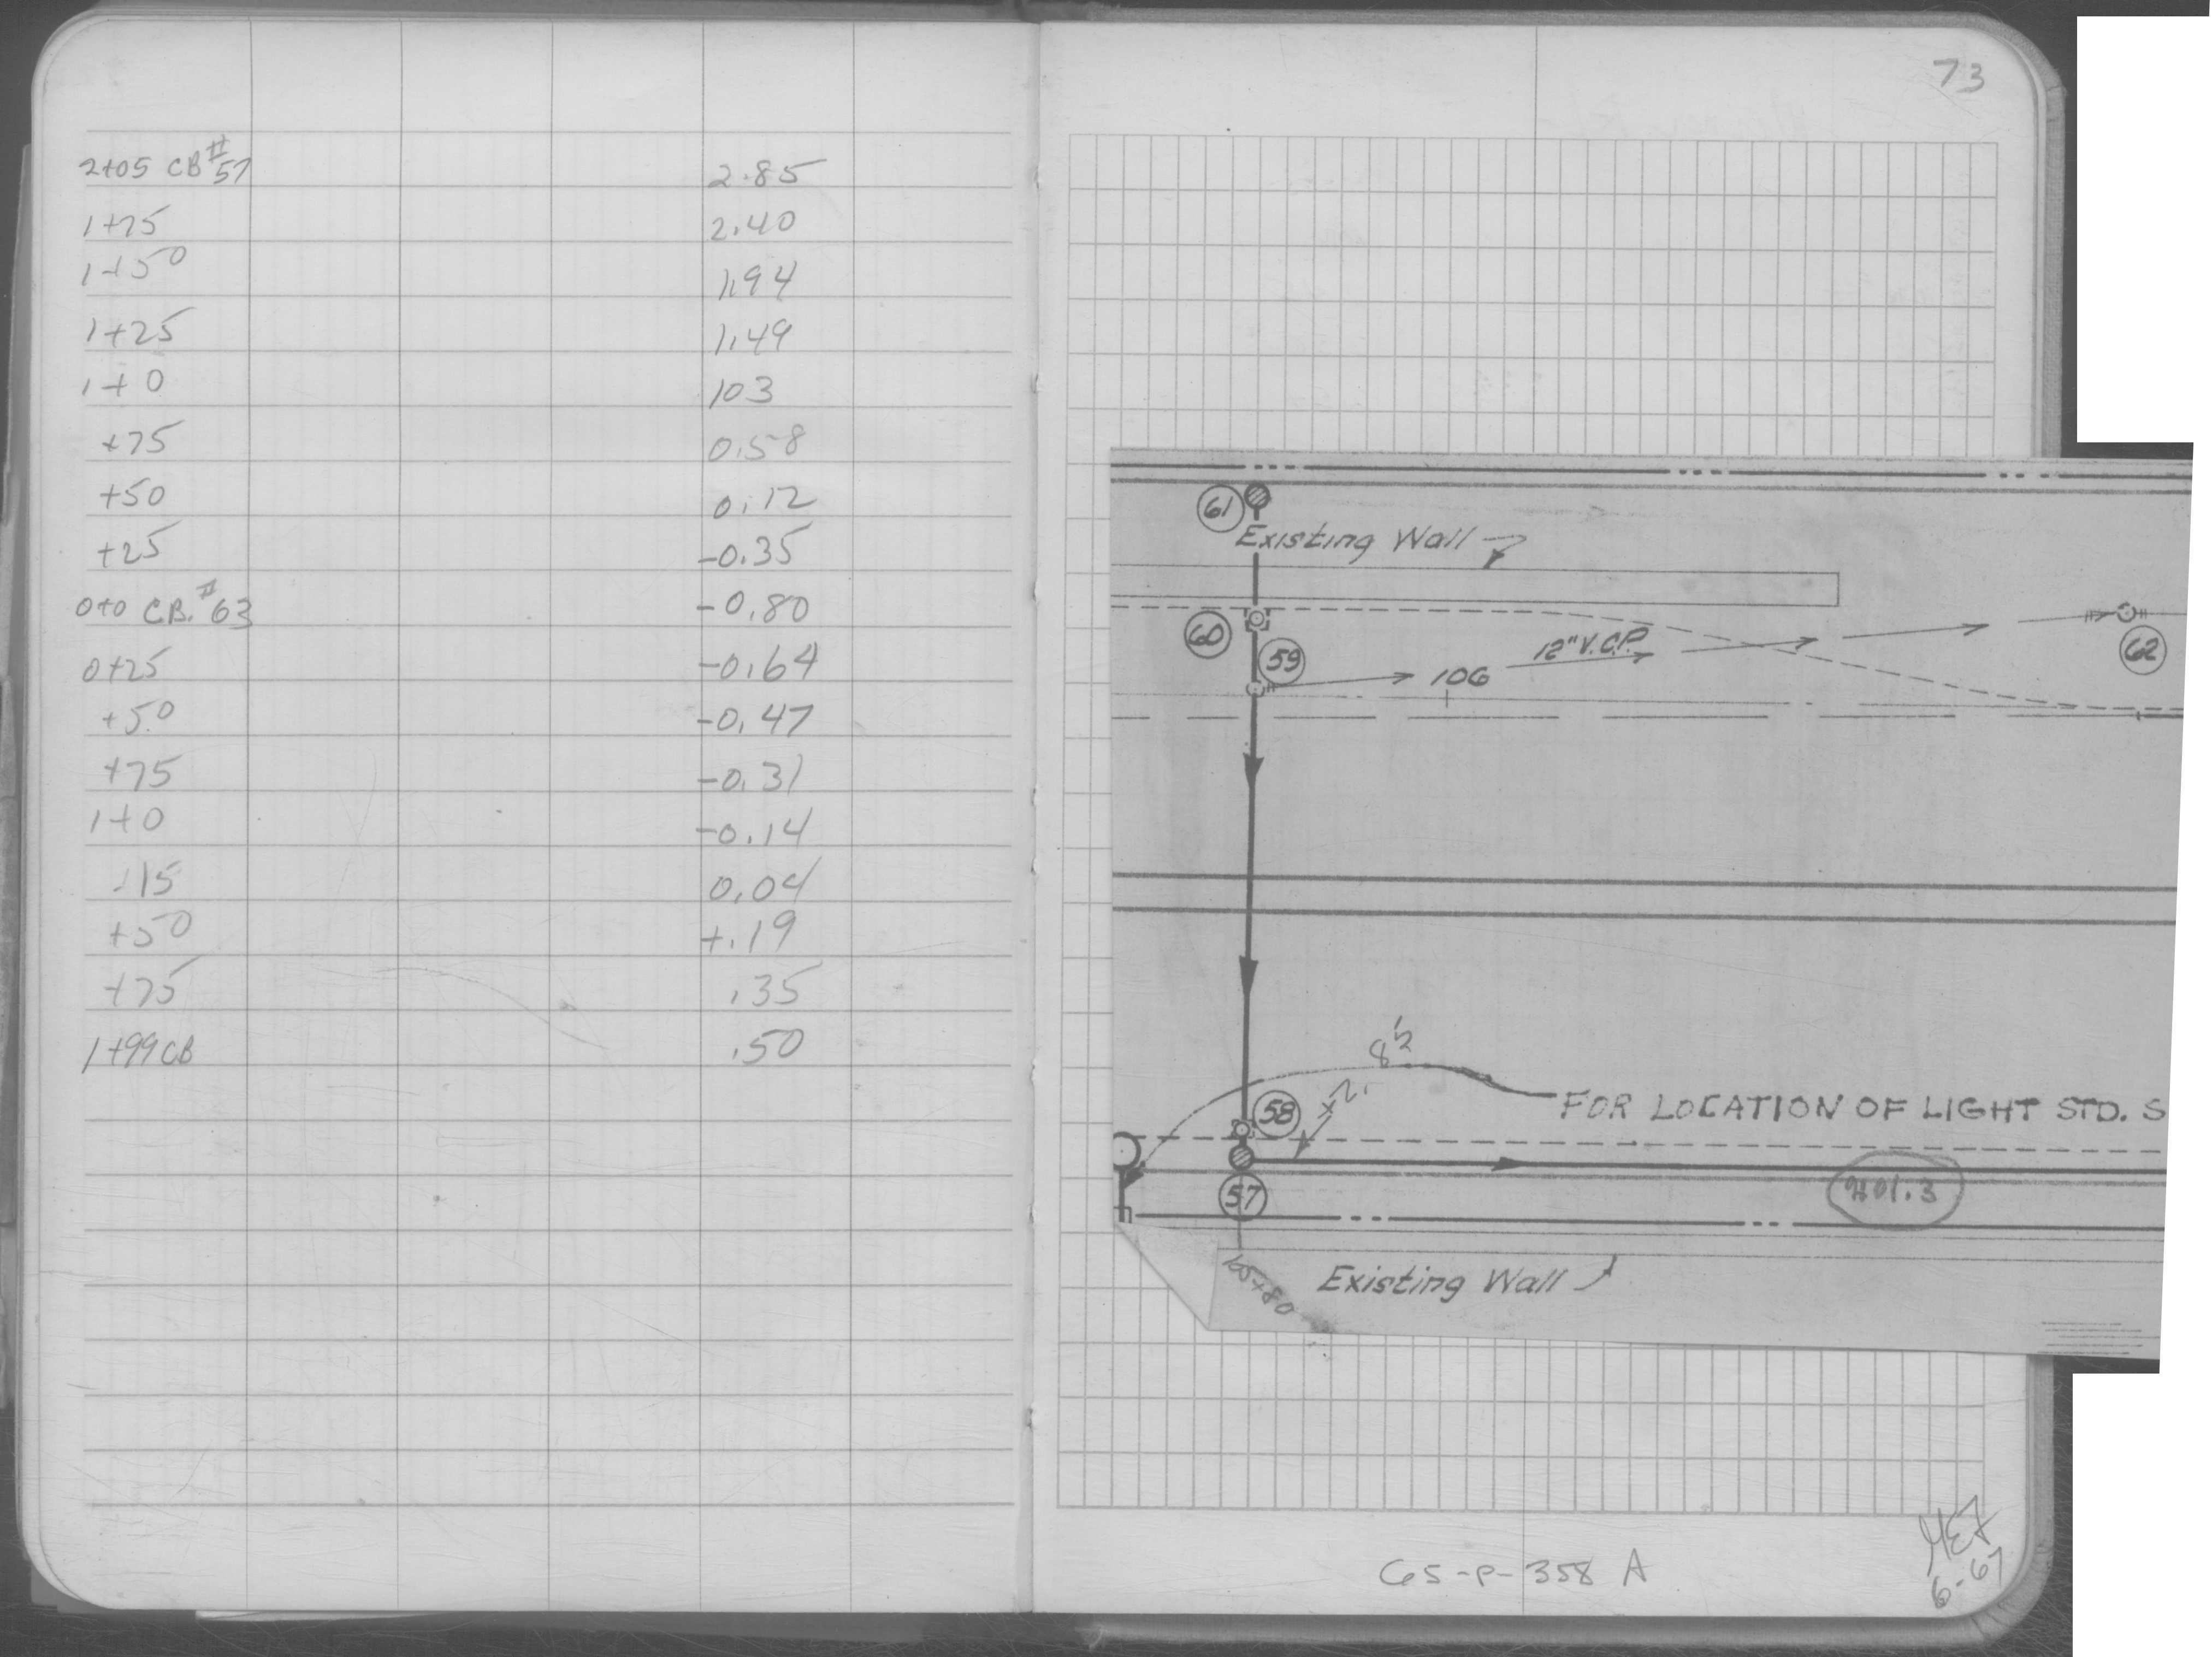 2+05 CB #57 2.85
1+75 2.40
1+50 1.94
1+25 1.49
1+0 103
+75 0.58
+50 0.12
+25 -0.35
0+0 CB. #63 -0.80
0+25 -0.64
+50 -0.47
+75 -0.31
1+0 -0.14
+15 0.04
+50 +.19
+75 .35
1+99 CB .50
73
61
Existing Wall
60
59
12" V.C.P.
106
62
8½
58
FOR LOCATION OF LIGHT STD. S
57
105+80
Existing Wall
65-P-358 A
6-67